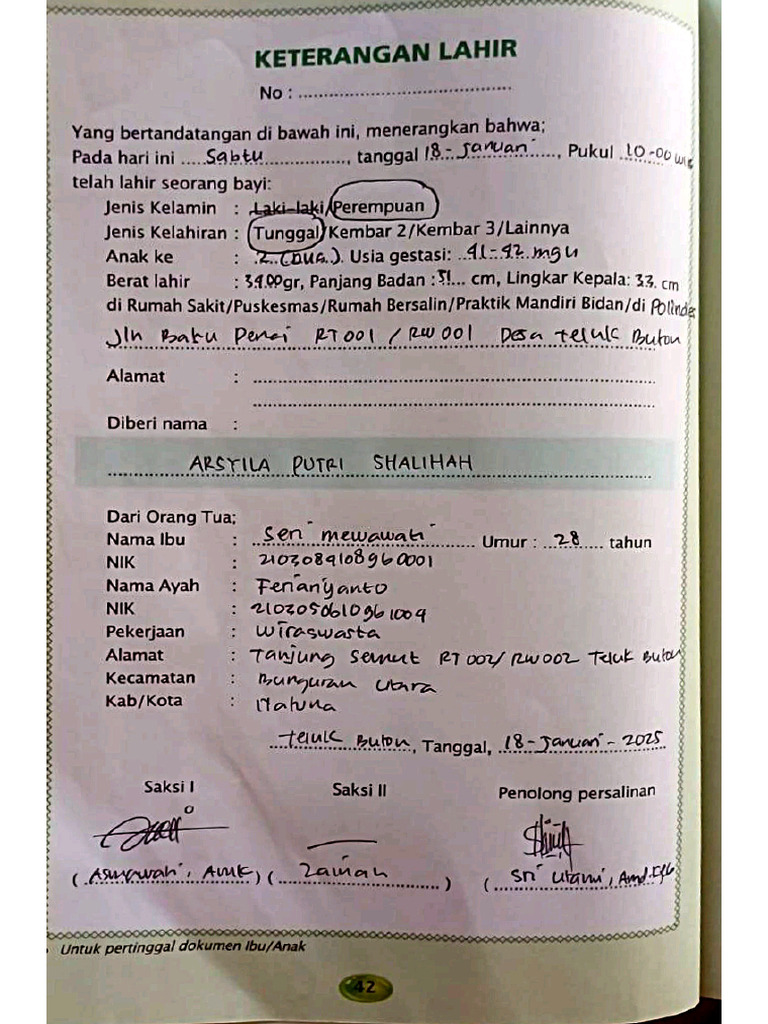 KETERANGAN LAHIR
No : ..........................................
Yang bertandatangan di bawah ini, menerangkan bahwa;
Pada hari ini Sabtu, tanggal 18 - Januari, Pukul 10-00 WIB
telah lahir seorang bayi:
Jenis Kelamin : Laki-laki/Perempuan
Jenis Kelahiran : Tunggal/Kembar 2/Kembar 3/Lainnya
Anak ke : 2 (Dua). Usia gestasi: 41-42 mgu
Berat lahir : 3400gr, Panjang Badan : 51 cm, Lingkar Kepala: 33 cm
di Rumah Sakit/Puskesmas/Rumah Bersalin/Praktik Mandiri Bidan/di Polindes
Jln Batu RT 001 / RW 001 Desa Teluk Buton
Alamat : ..........................................
Diberi nama :
ARSYILA PUTRI SHALIHAH
Dari Orang Tua;
Nama Ibu : Seri mewawati Umur : 28 tahun
NIK : 2103084108960001
Nama Ayah : Ferianyanto
NIK : 2103050610961009
Pekerjaan : Wiraswasta
Alamat : Tanjung Semut RT 002/ RW 002 Teluk Buton
Kecamatan : Bunguran Utara
Kab/Kota : Natuna
Teluk Buton, Tanggal, 18 - Januari - 2025
Saksi I Saksi II Penolong persalinan
(Asmawah, AMK) (Zainah) (Sri Utami, Amd.Keb)
Untuk pertinggal dokumen Ibu/Anak
42